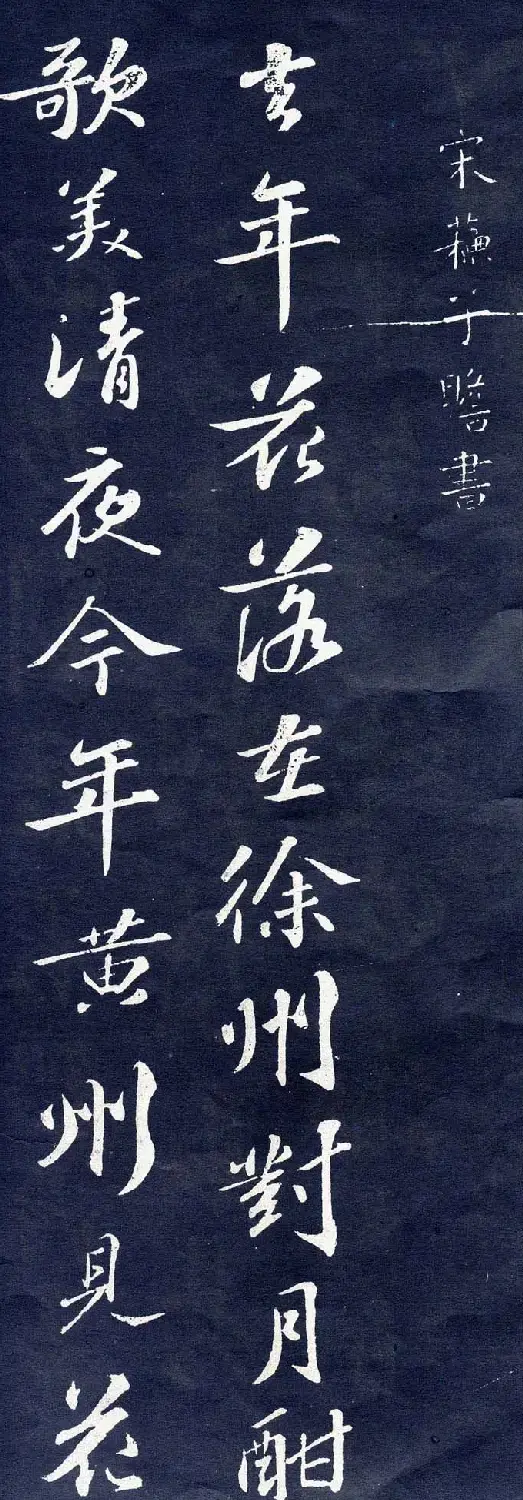 宋蘓子瞻書
去年花落在徐州對月酣
歌美清夜今年黄州見花